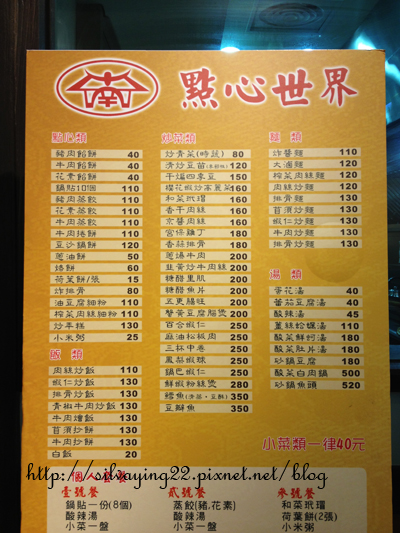 南
點心世界
點心類
豬肉餡餅 40
牛肉餡餅 40
花素餡餅 40
鍋貼10個 110
豬肉蒸餃 110
花素蒸餃 110
牛肉蒸餃 130
牛肉捲餅 110
豆沙鍋餅 120
蔥油餅 50
燒餅 60
荷葉餅/張 15
炸排骨 80
油豆腐細粉 110
榨菜肉絲細粉 110
炒年糕 130
小米粥 25
飯類
肉絲炒飯 110
蝦仁炒飯 130
排骨炒飯 130
青椒牛肉炒飯 130
牛肉燴飯 130
首須炒餅 130
牛肉炒餅 130
白飯 20
炒菜類
炒青菜(時蔬) 80
清炒豆苗 120
干煸四季豆 150
櫻花蝦炒高麗菜 160
和菜玳瑁 160
香干肉絲 160
京醬肉絲 160
宮保雞丁 180
香菇排骨 180
蔥爆牛肉 200
韭黃炒牛肉絲 200
糖醋里肌 200
糖醋魚片 200
五更腸旺 200
蟹黃豆腐煲 200
百合蝦仁 250
麻油松板肉 250
三杯中卷 250
鳳梨蝦球 250
鍋巴蝦仁 250
鮮蝦粉絲煲 280
鱈魚(清蒸、豆酥) 350
豆瓣魚 350
麵類
炸醬麵 110
大滷麵 120
榨菜肉絲麵 120
肉絲炒麵 120
排骨麵 130
首須炒麵 130
蝦仁炒麵 130
牛肉炒麵 130
排骨炒麵 130
湯類
蛋花湯 40
蕃茄豆腐湯 40
酸辣湯 45
薑絲蛤蠣湯 180
酸菜鮮蚵湯 180
酸菜肚片湯 180
砂鍋豆腐 180
酸菜白肉鍋 520
砂鍋魚頭 520
小菜類一律40元
http://silvaying22.pixnet.net/blog
個人套餐
壹號餐
鍋貼一份(8個)
酸辣湯
小菜一盤
貳號餐
蒸餃(豬,花素)
酸辣湯
小菜一盤
參號餐
和菜玳瑁
荷葉餅(2張)
小米粥